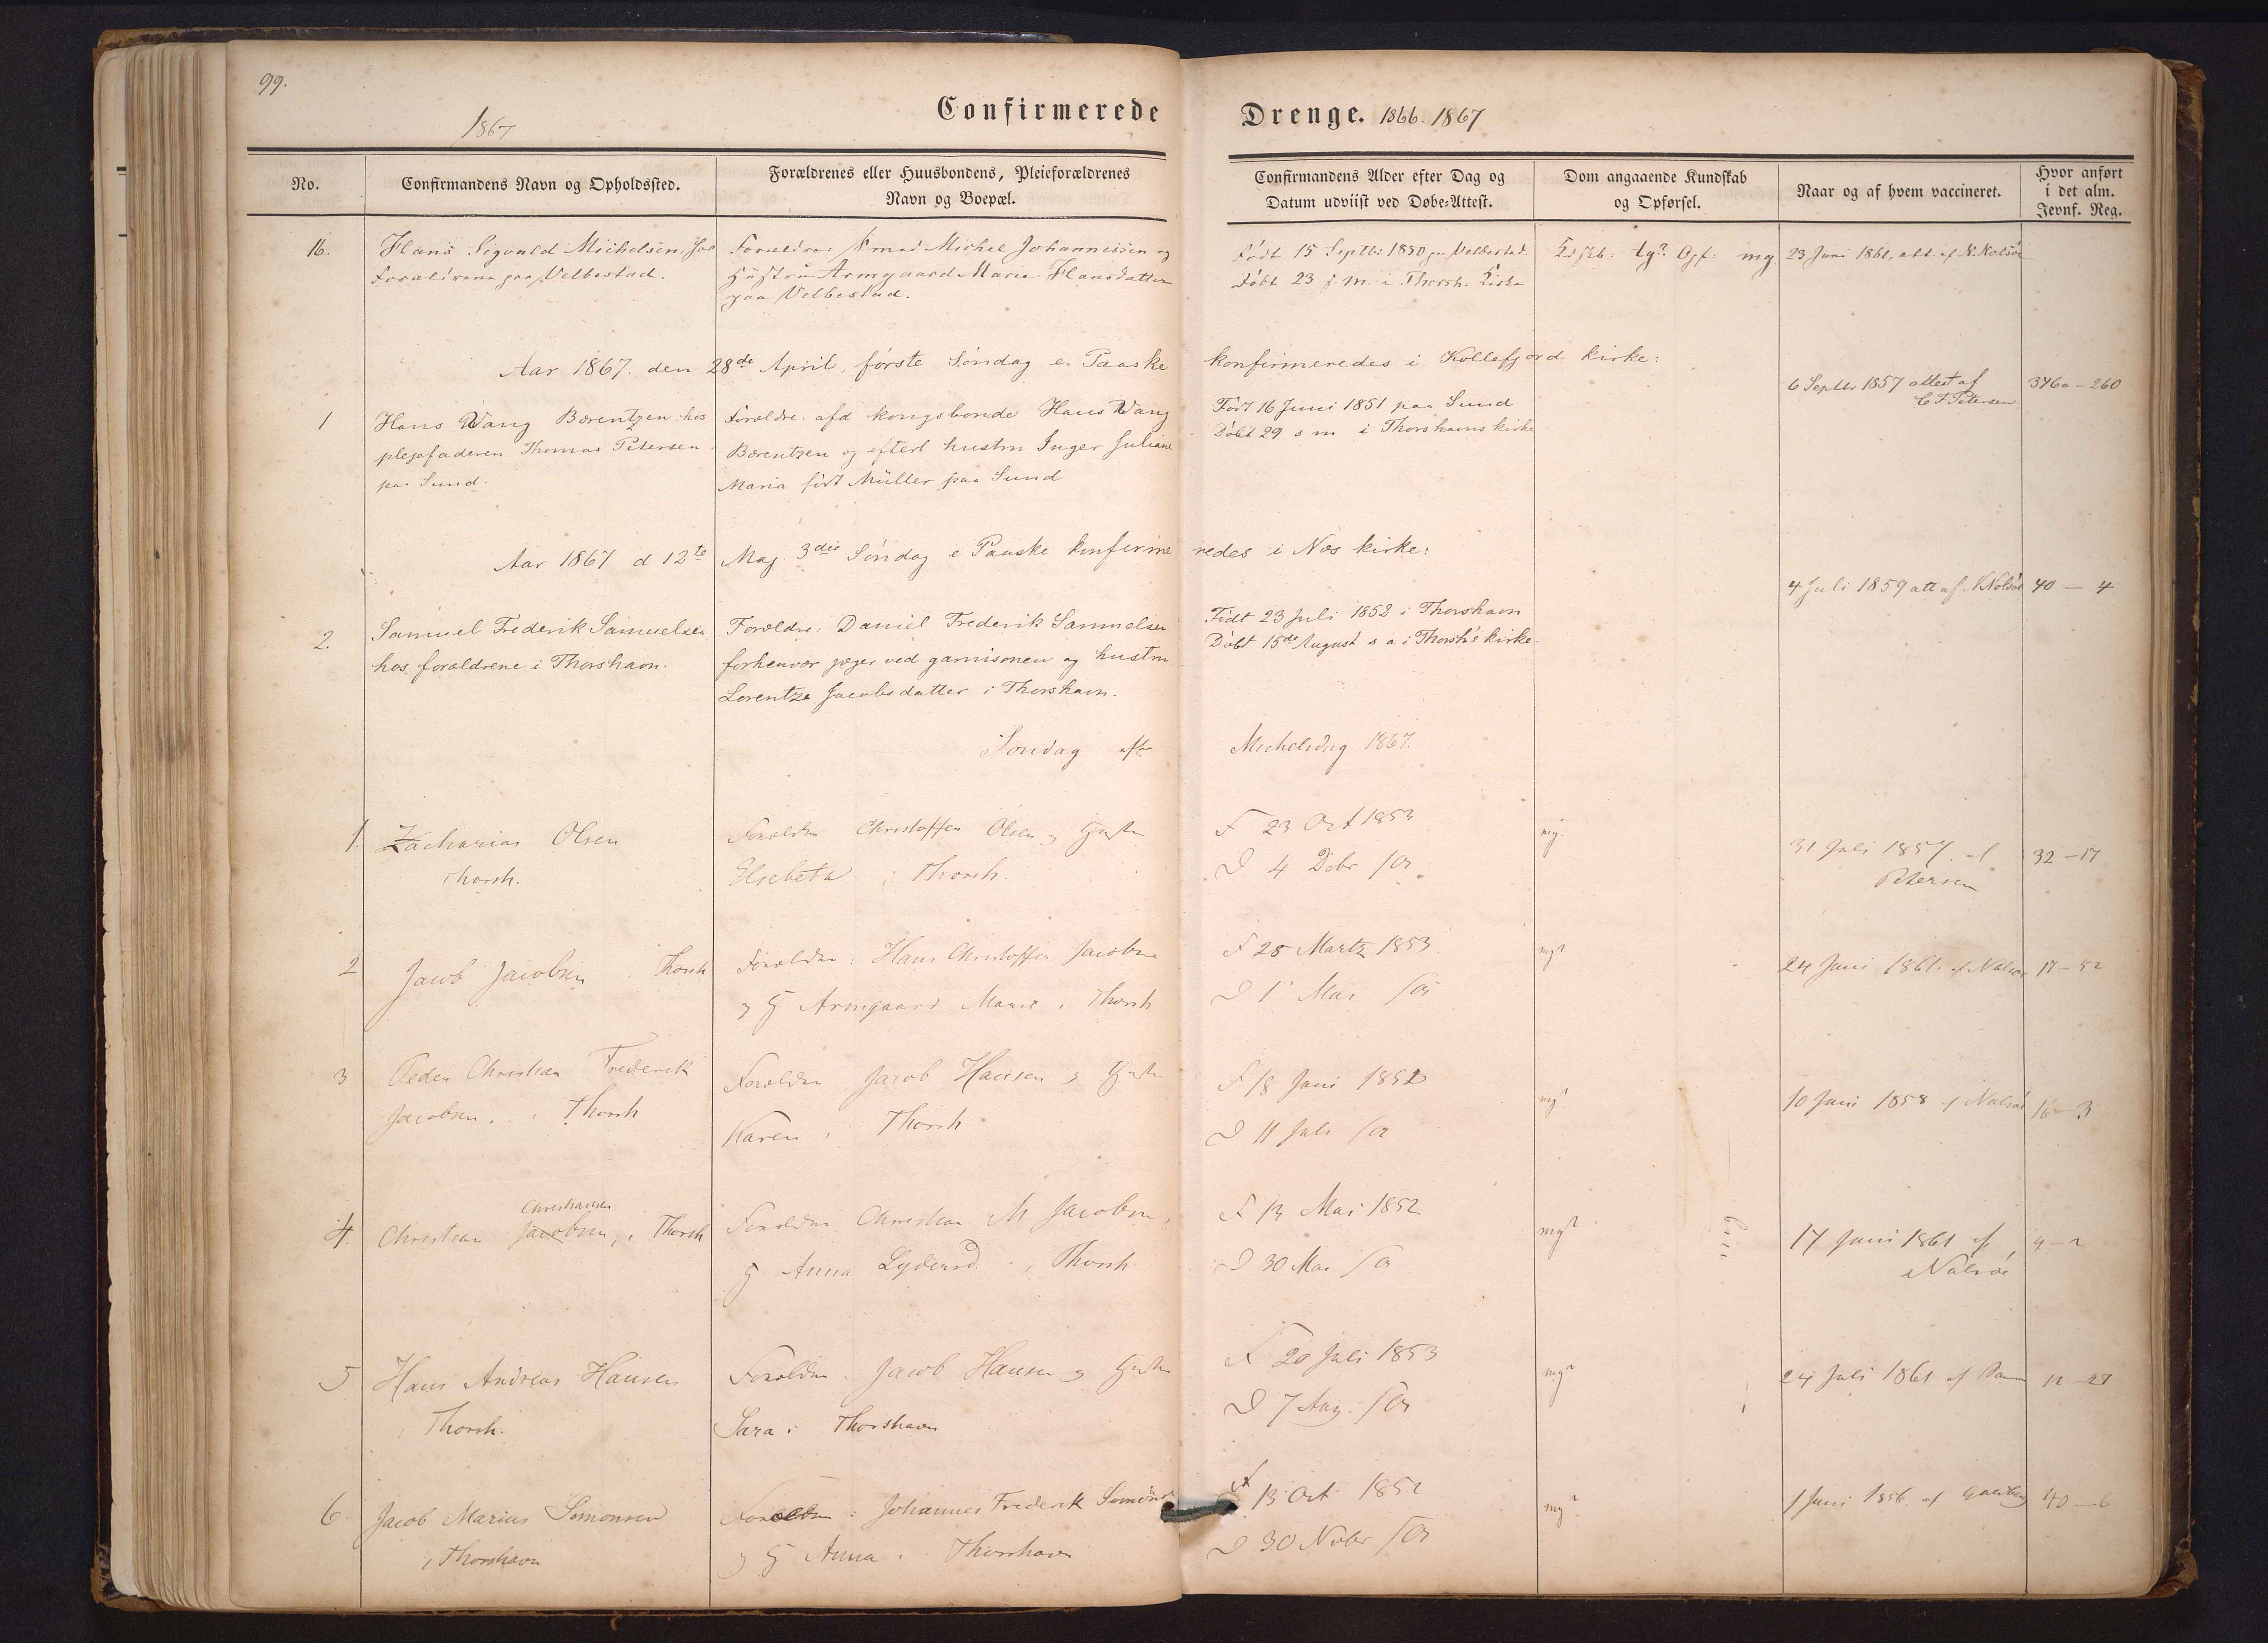 99.
1867
Confirmerede Drenge. 1866. 1867
No.
Confirmandens Navn og Opholdssted.
Forældrenes eller Huusbondens, Pleieforældrenes
Navn og Boepæl.
Confirmandens Alder efter Dag og
Datum udviist ved Døbe-Attest.
Dom angaaende Kundskab
og Opførsel.
Naar og af hvem vaccineret.
Hvor anført
i det alm.
Jevnf. Reg.
16.
Hans Sigvald Michelsen, hos
Forældrene paa Velbestad.
Forældre: Michel Johannessen og
Hustru Armgaard Maria Hansdatter
paa Velbestad.
Født 15 Septbr 1850 paa Velbestad.
Døbt 23 s. m. i Thorsh. Kirke
Kdskb: tg? Opf: mg
23 Juni 1861, att. af N. Nolsöe
Aar 1867. den 28de April, første Søndag e. Paaske konfirmeredes i Kollefjord kirke:
1
Hans Wang Bærentzen hos
plejefaderen Thomas Petersen
paa Sund.
Forældre: afd kongsbonde Hans Wang
Bærentzen og efterl hustru Inger Juliane
Maria født Müller paa Sund
Født 16 Juni 1851 paa Sund
Döbt 29 s m i Thorshavns kirke
6 Septbr 1857 attest af
C F Petersen
346a - 260
Aar 1867 d 12te Maj 3die Søndag e Paaske konfirmeredes i Næs kirke:
2.
Samuel Frederik Samuelsen
hos forældrene i Thorshavn.
Forældre: Daniel Frederik Samuelsen
forhenvær jæger ved garnisonen og hustru
Lorentza Jacobsdatter i Thorshavn.
Född 23 Juli 1852 i Thorshavn
Döbt 15de August s a i Thorsh's kirke.
4 Juli 1859 att af Nolsöe
40 — 4
Søndag eft Michelsdag 1867.
1.
Zacharias Olsen
Thorsh.
Forældre Christoffer Olsen og Hustru
Elsebeta i Thorsh.
F 23 Oct 1853
D 4 Debr s a
mg.
31 Juli 1857. af
Petersen
32 - 17
2
Jacob Jacobsen i Thorsh
Forældre: Hans Christoffer Jacobsen
og H Armgaard Marie i Thorsh
F 28 Martz 1853
D 1 Mai s a
mg?
24 Juni 1861. af Nolsøe
17 - 52
3
Peder Christian Frederik
Jacobsen. i Thorsh
Forældre Jacob Hansen og Hustru
Karen i Thorsh
F 18 Juni 1852
D 11 Juli s a
mg?
10 Juni 1858 af Nolsöe
16 - 3
4.
Christiansen
Christian Jacobsen, i Thorsh
Forældre Christian M Jacobsen,
H Anna Lydersd. i Thorsh.
F 13 Mai 1852
D 30 Mai s a
mg?
17 Juni 1861 af
Nolsöe
4 - 2
5
Hans Andreas Hansen
i Thorsh.
Forældre Jacob Hansen og Hustru
Sara i Thorshavn
F 20 Juli 1853
D 7 Aug. s a
mg?
24 Juli 1861 af
12 - 27
6.
Jacob Marius Simonsen
i Thorshavn
Forældre: Johannes Frederik Simonsen
og H Anna i Thorshavn
F 13 Oct 1852
D 30 Nvbr s a
mg?
1 Juni 1856. af
40 - 6